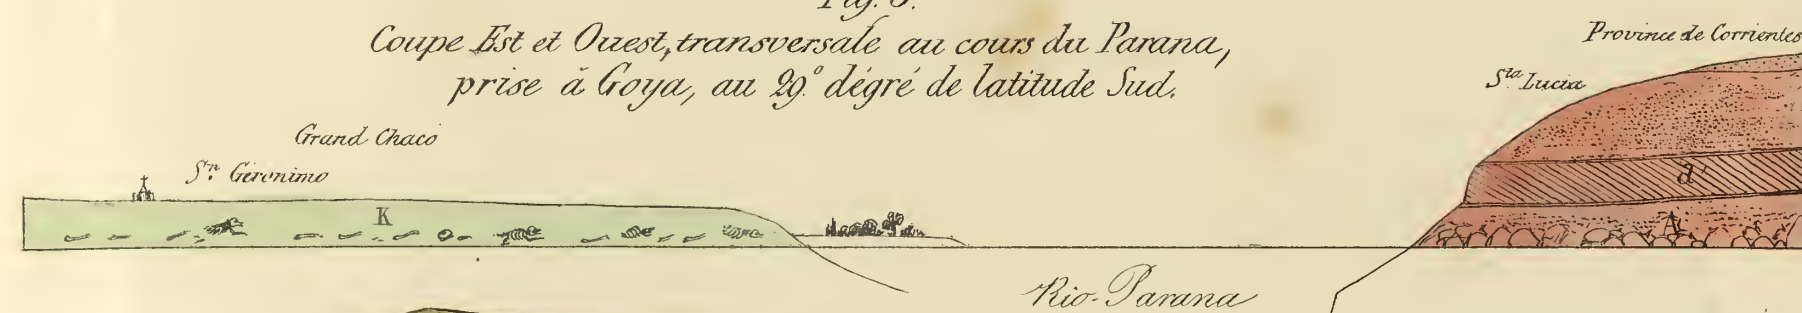 Coupe Est et Ouest, transversale au cours du Parana,
prise à Goya, au 29° dégré de latitude Sud.
Province de Corrientes
Sta Lucia
Grand Chaco
Sn Geronimo
K
a
A
Rio-Parana